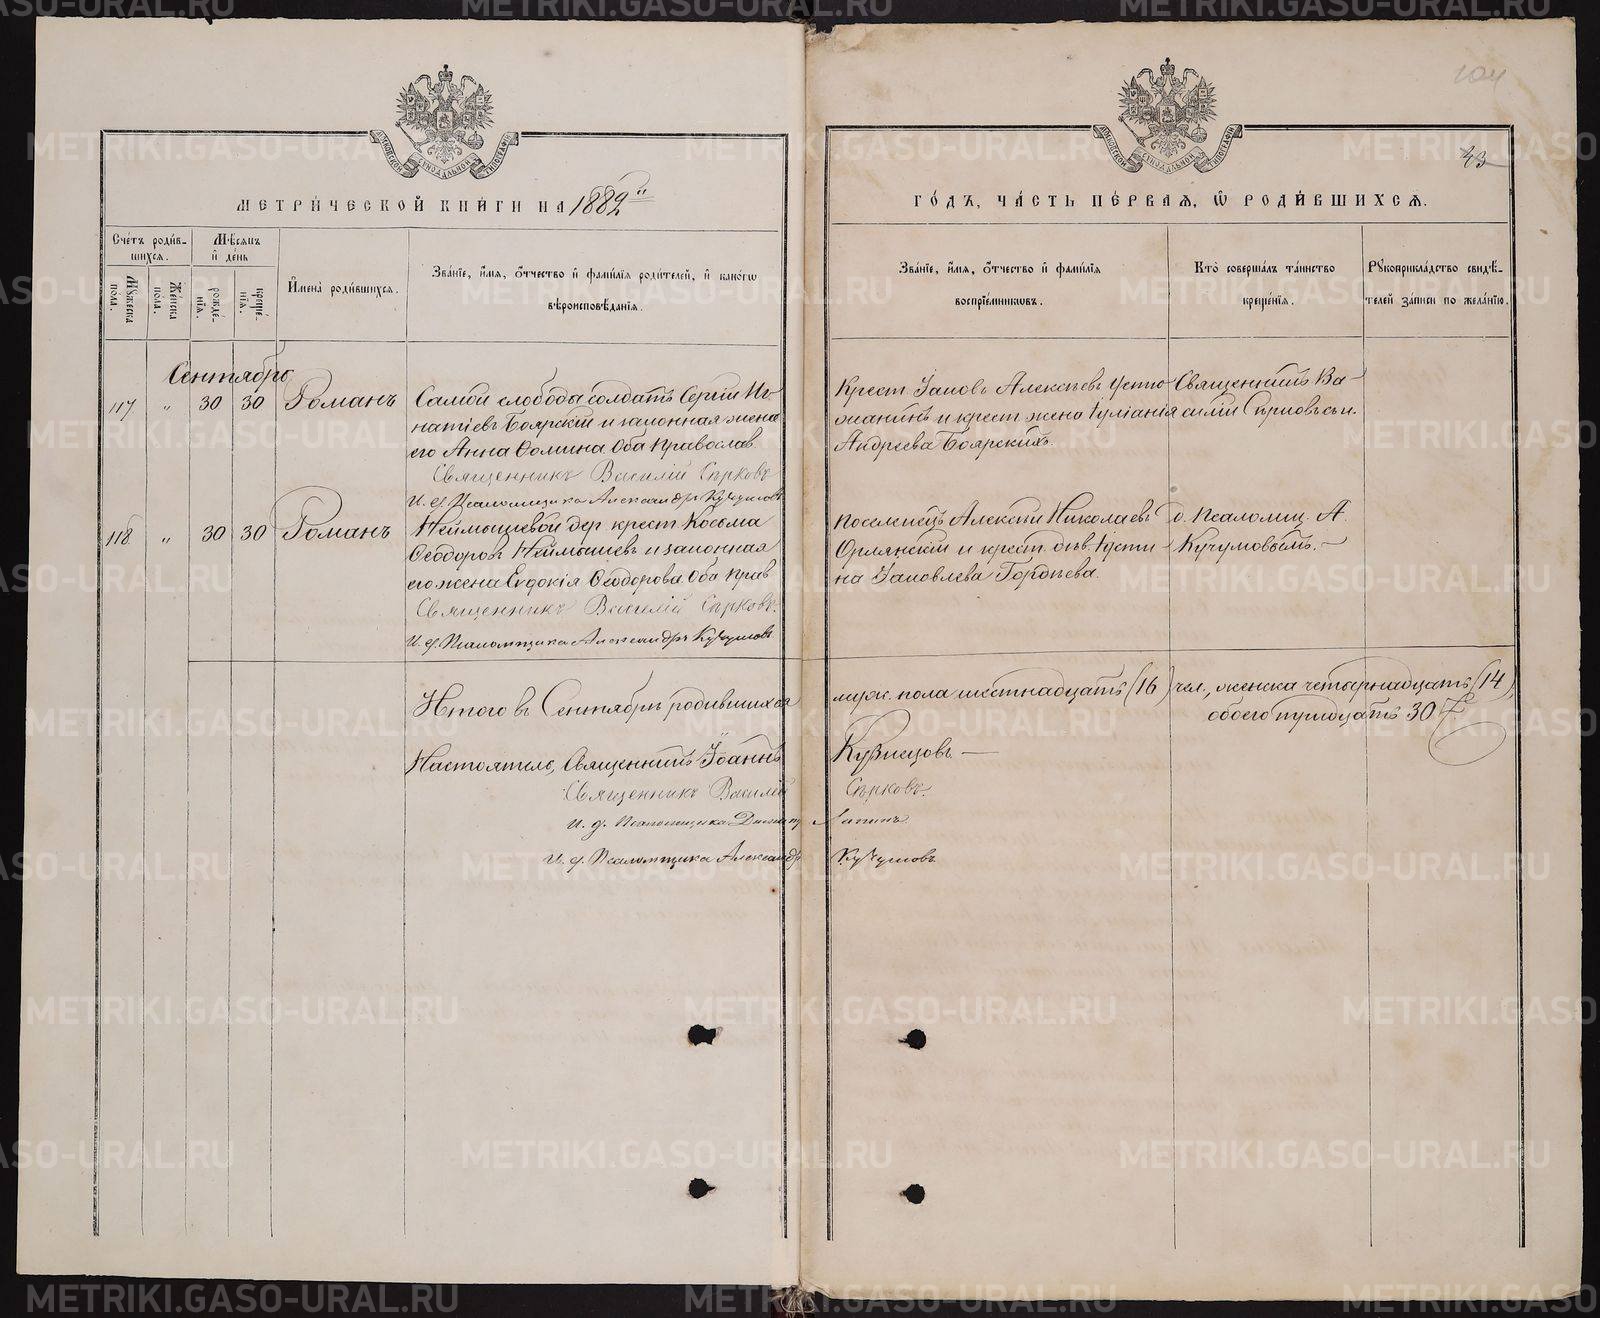 104
43
МЕТРИЧЕСКОЙ КНИГИ НА 1882й
ГОДЪ, ЧАСТЬ ПЕРВАЯ, Ѡ РОДИВШИХСЯ.
Счетъ родив-
шихся.
Мѣсяцъ
и день
Мужеска пола.
Женска пола.
рожде-
нія.
креще-
нія.
Имена родившихся.
Званіе, имя, отчество и фамилія родителей, и какогѡ
вѣроисповѣданія.
Званіе, имя, отчество и фамилія
воспріемниковъ.
Кто совершалъ таинство
крещенія.
Рукоприкладство свидѣ-
телей записи по желанію.
Сентябрь
117 „ 30 30 Романъ
Самой слободы солдатъ Сергій Иг-
натіевъ Боярскій и законная жена
его Анна Фомина Оба Православ
Священникъ Василій Сѣрковъ
И. д. Псаломщика Александръ Кучумовъ
Крест. Іаковъ Алексѣевъ Устю-
жанинъ и крест. жена Іуліанія
Андреева Боярскихъ.
Священникъ Ва-
силій Сѣрковъ съ и.
118 „ 30 30 Романъ
Неймышевой дер. крест. Косьма
Ѳеодоровъ Неймышевъ и законная
его жена Евдокія Ѳеодорова Оба Прав
Священникъ Василій Сѣрковъ.
И. д. Псаломщика Александръ Кучумовъ
Поселенецъ Алексѣй Николаевъ
Орлянскій и крест. дѣв. Іусти-
на Іаковлева Гордѣева.
д. Псаломщ. А.
Кучумовымъ.
Итого въ Сентябрѣ родившихся муж. пола шестнадцать (16) чел., женска четырнадцать (14),
обоего тридцать 30
Настоятель, Священникъ Іоаннъ Кузнецовъ
Священникъ Василій Сѣрковъ.
И. д. Псаломщика Димитр Лапинъ
И. д. Псаломщика Александръ Кучумовъ
METRIKI.GASO-URAL.RU